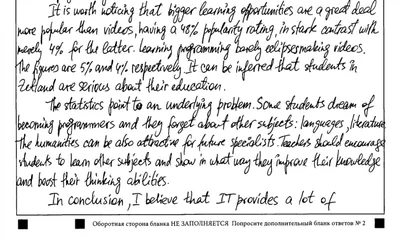 It is worth noticing that bigger learning opportunities are a great deal
more popular than videos, having a 48% popularity rating, in stark contrast with
merely 4% for the latter. Learning programming barely eclipses making videos.
The figures are 5% and 4% respectively. It can be inferred that students in
Zetland are serious about their education.
The statistics point to an underlying problem. Some students dream of
becoming programmers and they forget about other subjects: languages, literature.
The humanities can be also attractive for future specialists. Teachers should encourage
students to learn other subjects and show in what way they improve their knowledge
and boost their thinking abilities.
In conclusion, I believe that IT provides a lot of
Оборотная сторона бланка НЕ ЗАПОЛНЯЕТСЯ Попросите дополнительный бланк ответов № 2